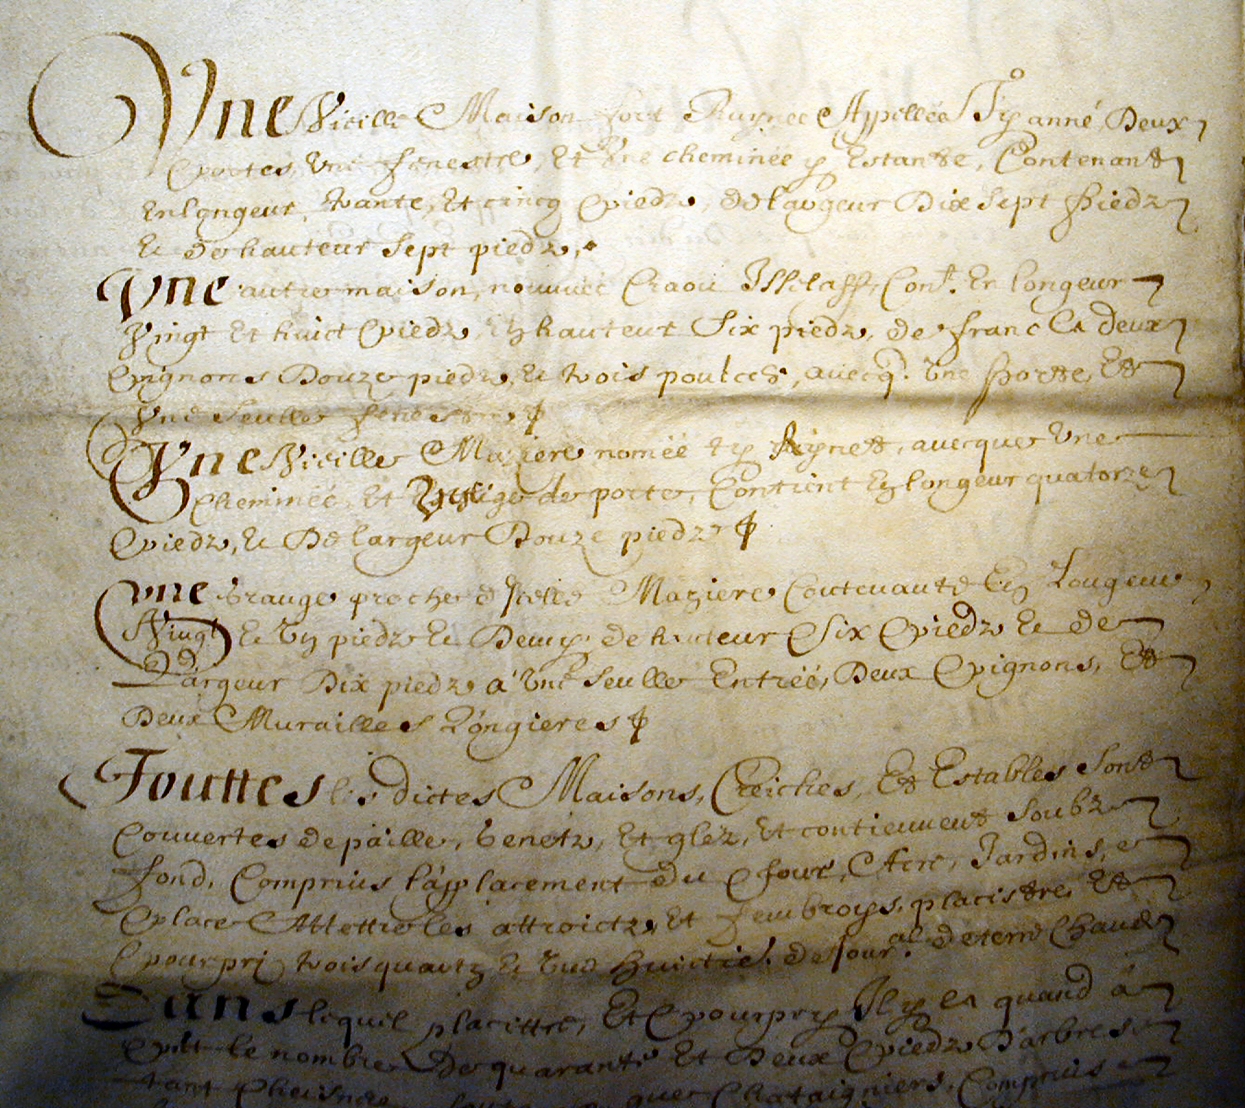 Une Vieille Maison fort Ruynée Appellée Ty anné, Deux
portes, une fenestre, Et Une cheminée y Estante, Contenant
En longeur, trante, Et cincq piedz, de largeur Dix sept piedz
Et de hauteur sept piedz,
Une autre maison, nommée Craou Contt. En longeur
Vingt et huict piedz, En hauteur Six piedz, de franc Et deux
pignons Douze piedz, Et trois poulces, avecq. Une porte, Et
Une seulle fenestre
Une Vieille Maziere nomée ty avecques Une
cheminée, Et de porte, Contient En longeur quatorze
piedz, Et De largeur Douze piedz
Une Grange proche d'Icelle Maziere Contenante En Longeur
Vingt Et Un piedz Et Demy, de hauteur Six piedz Et de
Largeur Dix piedz à Une seulle Entréé, Deux pignons, Et
Deux Murailles Longieres
Touttes les dictes Maisons, Creiches, Et Estables sont
Couvertes de paille, Genetz, Et glez, Et contiennent soubz
fond, Compriis l'applacement du four, Aire, Jardins, et
place attroictz, Et placistre, Et
pourpri trois quartz Et Une de Jour.al de terre Chaude
Dans lequel placittre, Et pourpry Il y a quand à
le nombre De quarante Et Deux piedz D'arbres
tant Chataigniers, Compriis